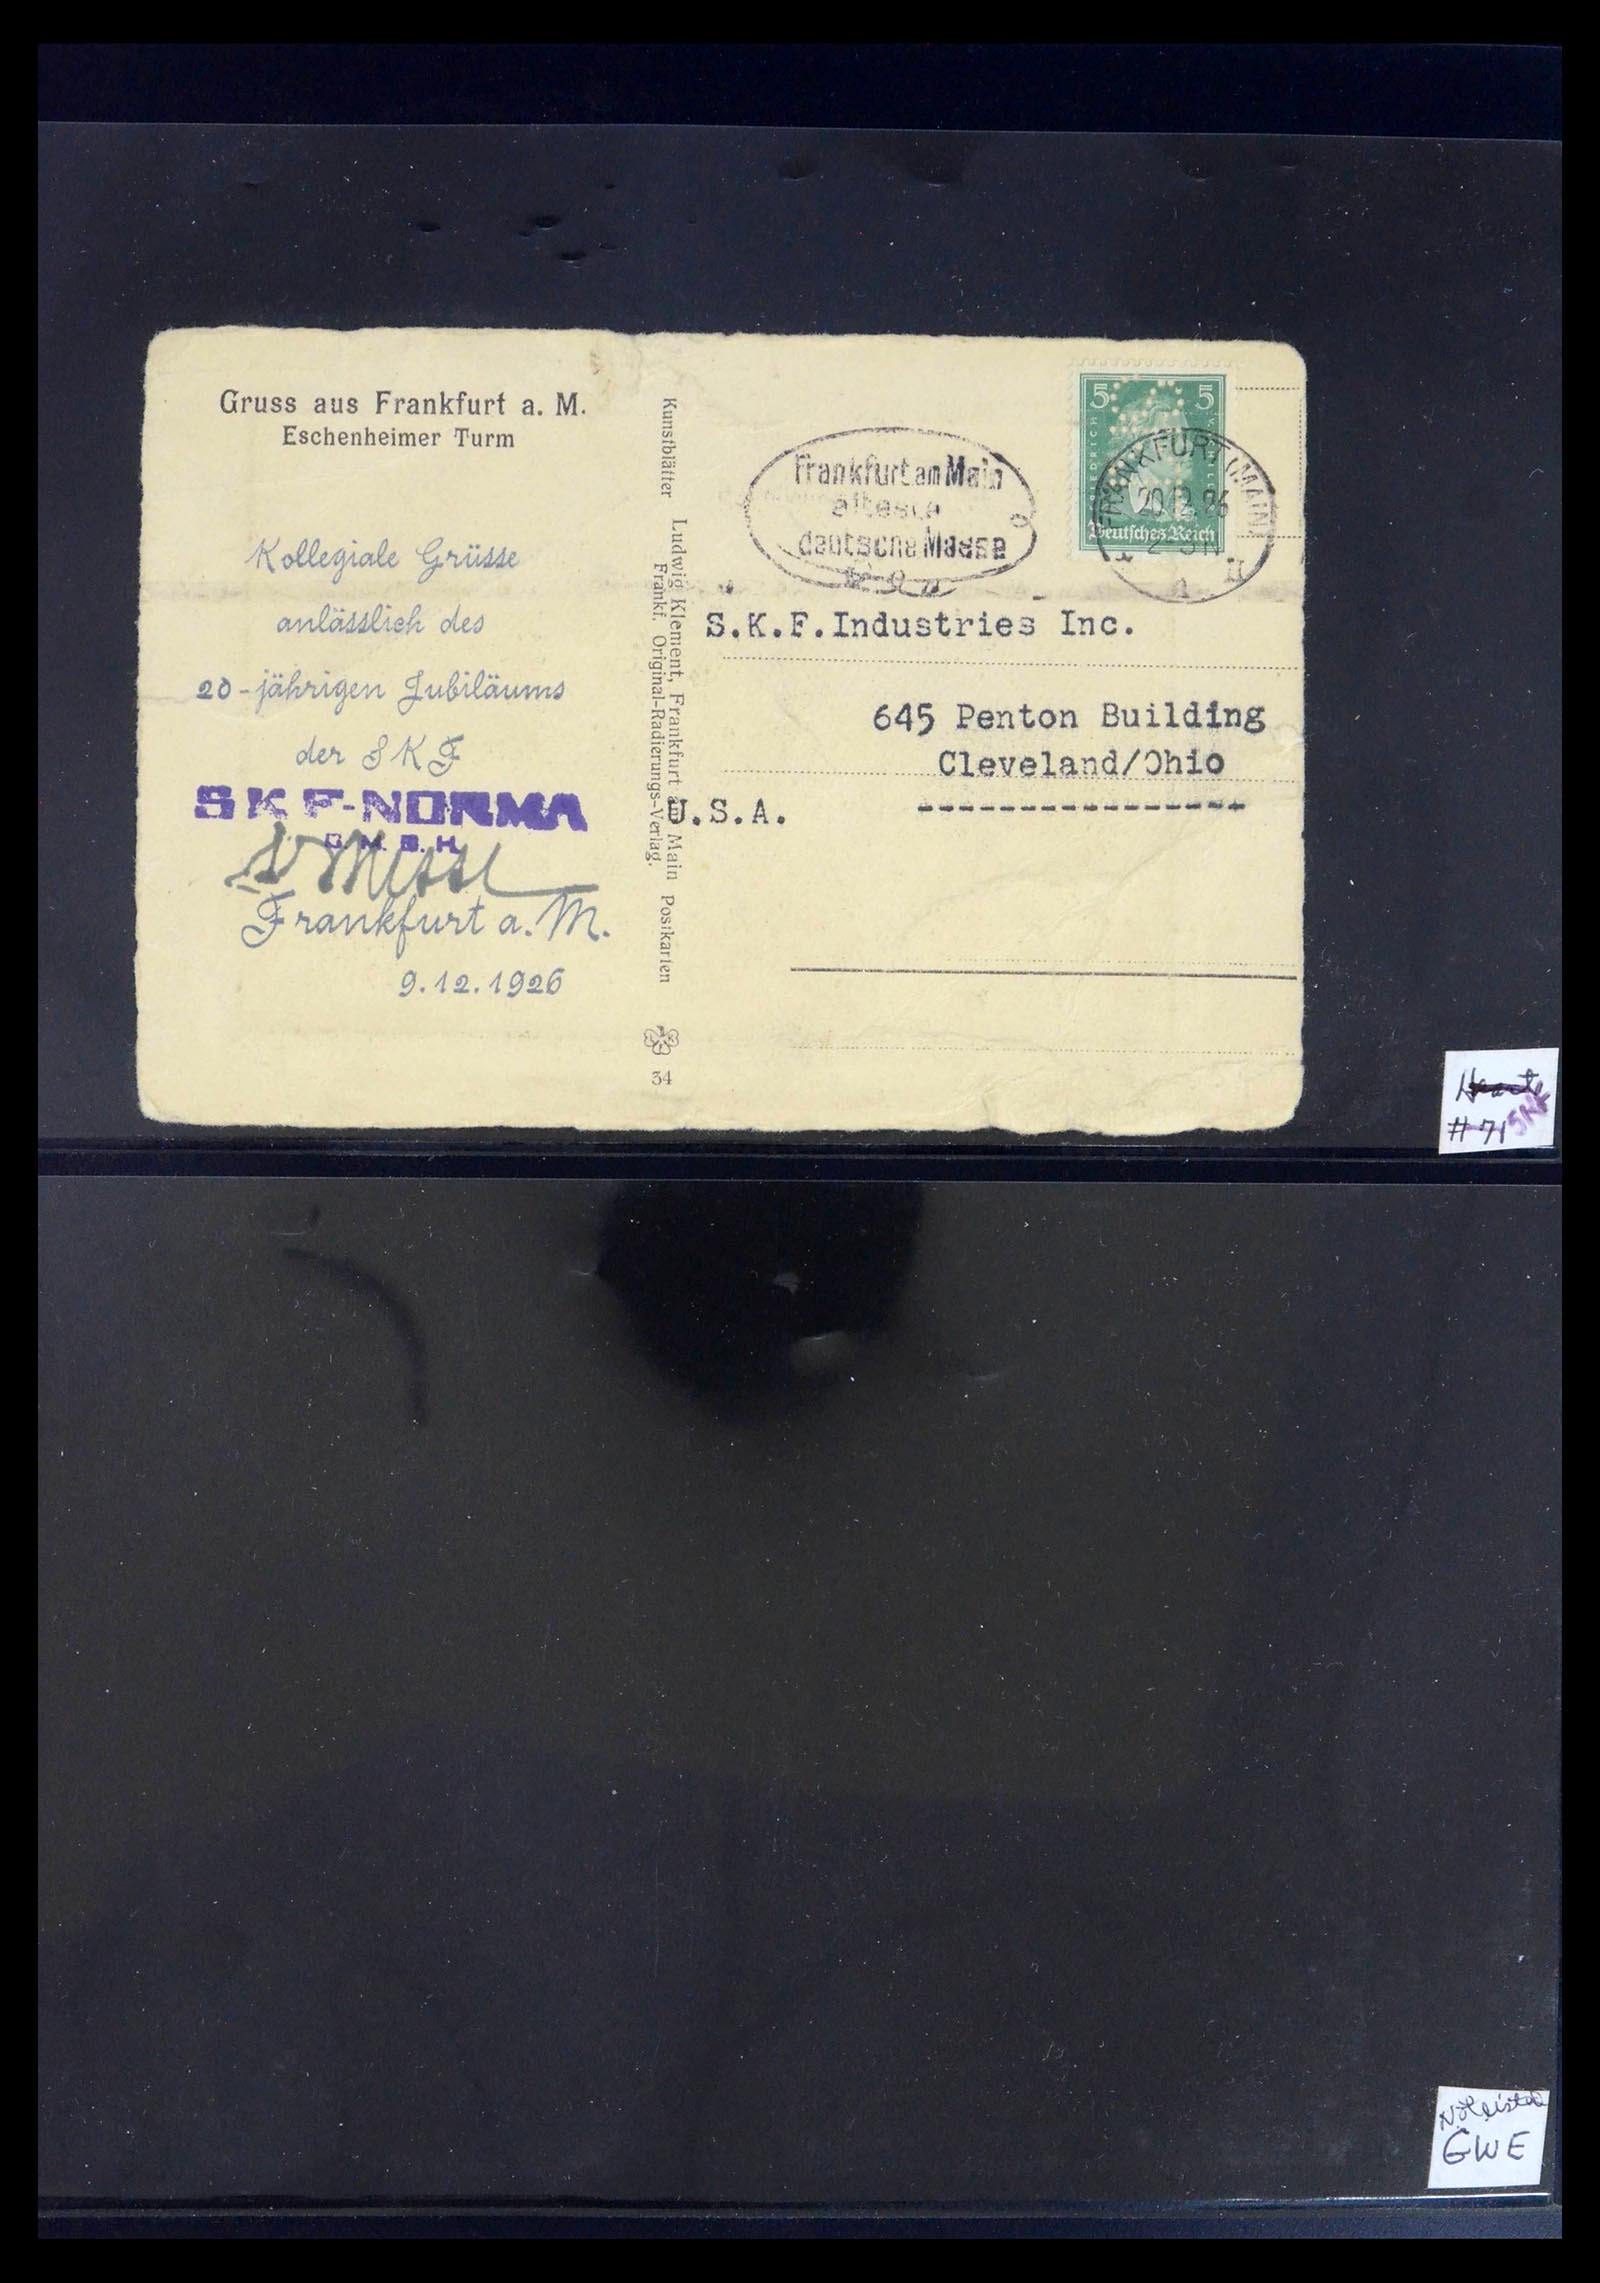 Gruss aus Frankfurt a. M.
Eschenheimer Turm
Kollegiale Grüsse
anlässlich des
20-jährigen Jubiläums
der SKF
SKF-NORMA
G.M.B.H.
Frankfurt a. M.
9.12.1926
Kunstblätter Ludwig Klement, Frankfurt am Main Postkarten
Frankf. Original-Radierungs-Verlag.
34
Frankfurt am Main
älteste
deutsche Messe
5 5
Deutsches Reich
FRANKFURT (MAIN)
20.12.26
2-3N
S.K.F.Industries Inc.
645 Penton Building
Cleveland/Ohio
U.S.A.
#71
Not Listed
GWE